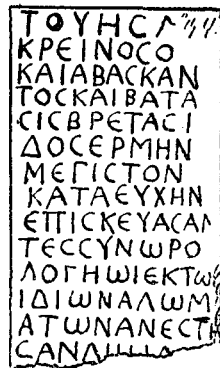 ΤΟΥΗϹ
ΚΡΕΙΝΟϹΟ
ΚΑΙΑΒΑϹΚΑΝ
ΤΟϹΚΑΙΒΑΤΑ
ϹΙϹΒΡΕΤΑϹΙ
ΔΟϹΕΡΜΗΝ
ΜΕΓΙϹΤΟΝ
ΚΑΤΑΕΥΧΗΝ
ΕΠΙϹΚΕΥΑϹΑΝ
ΤΕϹϹΥΝѠΡΟ
ΛΟΓΗѠΙΕΚΤѠ
ΙΔΙѠΝΑΛѠΜ
ΑΤѠΝΑΝΕϹΤ
ϹΑΝΔ